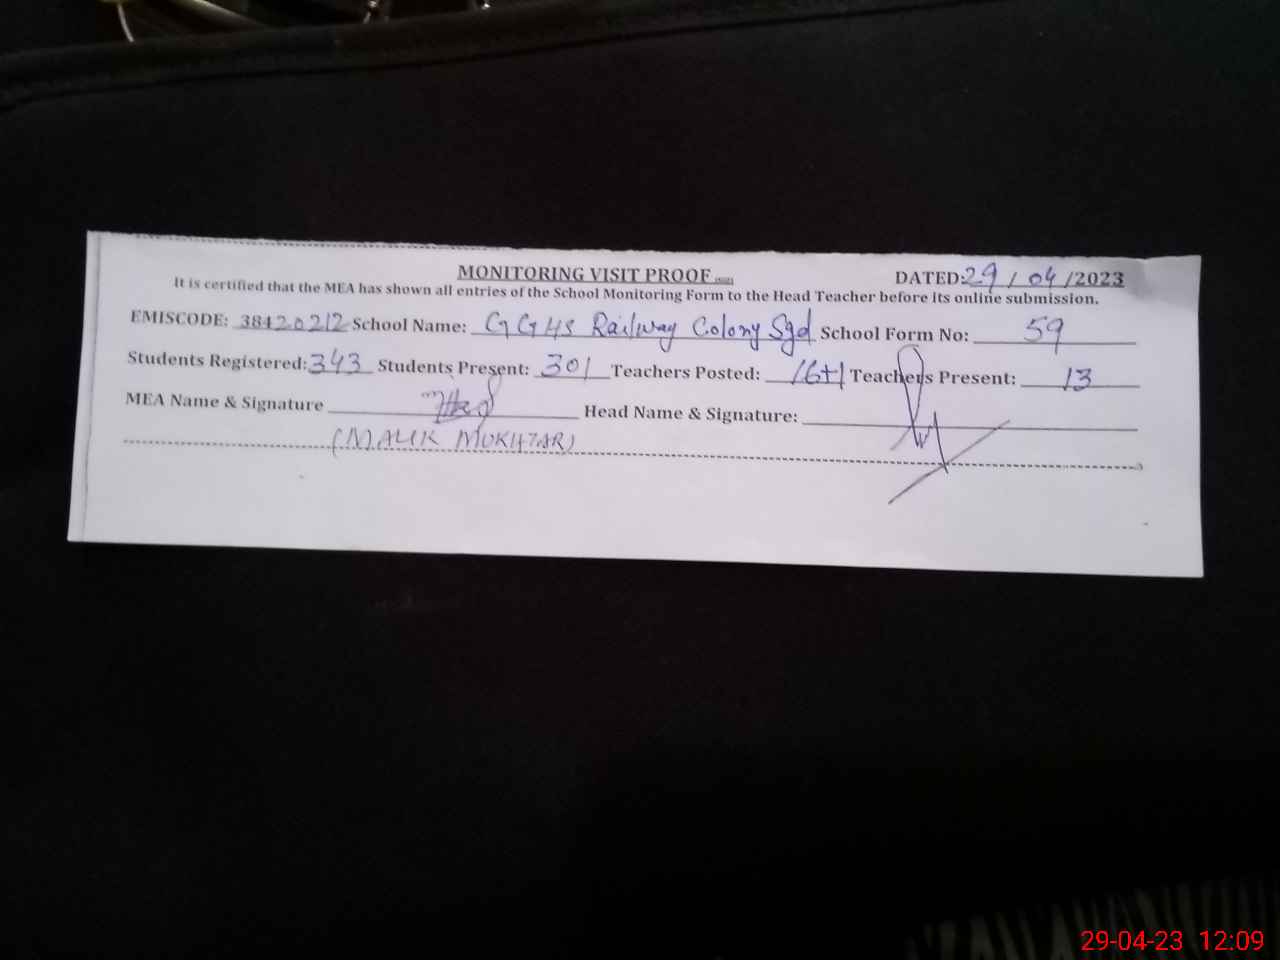 MONITORING VISIT PROOF
DATED: 29 / 04 /2023
It is certified that the MEA has shown all entries of the School Monitoring Form to the Head Teacher before its online submission.
EMISCODE: 38420212 School Name: GGHS Railway Colony Sgd School Form No: 59
Students Registered: 343 Students Present: 301 Teachers Posted: 16+1 Teachers Present: 13
MEA Name & Signature Head Name & Signature:
(MALIK MUKHTAR)
29-04-23 12:09